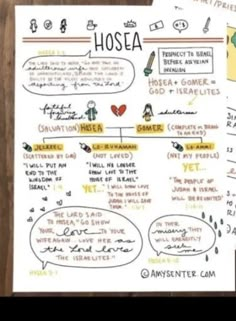 HOSEA
HOSEA 1:2
adulterous wife
departing from the Lord"
PROPHECY TO ISRAEL
BEFORE ASSYRIAN
INVASION
HOSEA + GOMER =
GOD + ISRAELITES
faithful
forgiving
husband
adulteress
(SALVATION) HOSEA
GOMER (COMPLETE or BRING
TO AN END)
JEZREEL
(SCATTERED BY GOD)
"I WILL PUT AN
END TO THE
KINGDOM OF
ISRAEL."
LO-RUHAMAH
(NOT LOVED)
"I WILL NO LONGER
SHOW LOVE TO THE
HOUSE OF ISRAEL"
YET...
"I WILL SHOW LOVE
TO THE HOUSE OF
JUDAH & WILL
SAVE THEM."
LO-AMMI
(NOT MY PEOPLE)
YET...
"THE PEOPLE OF
JUDAH & ISRAEL
WILL BE REUNITED"
THE LORD SAID
TO HOSEA, "GO SHOW
YOUR love TO YOUR
WIFE AGAIN. LOVE HER as
the Lord loves
THE ISRAELITES."
HOSEA 3:1
IN THEIR
misery THEY
WILL EARNESTLY
seek
me
HOSEA 5:15
© AMYSENTER.COM